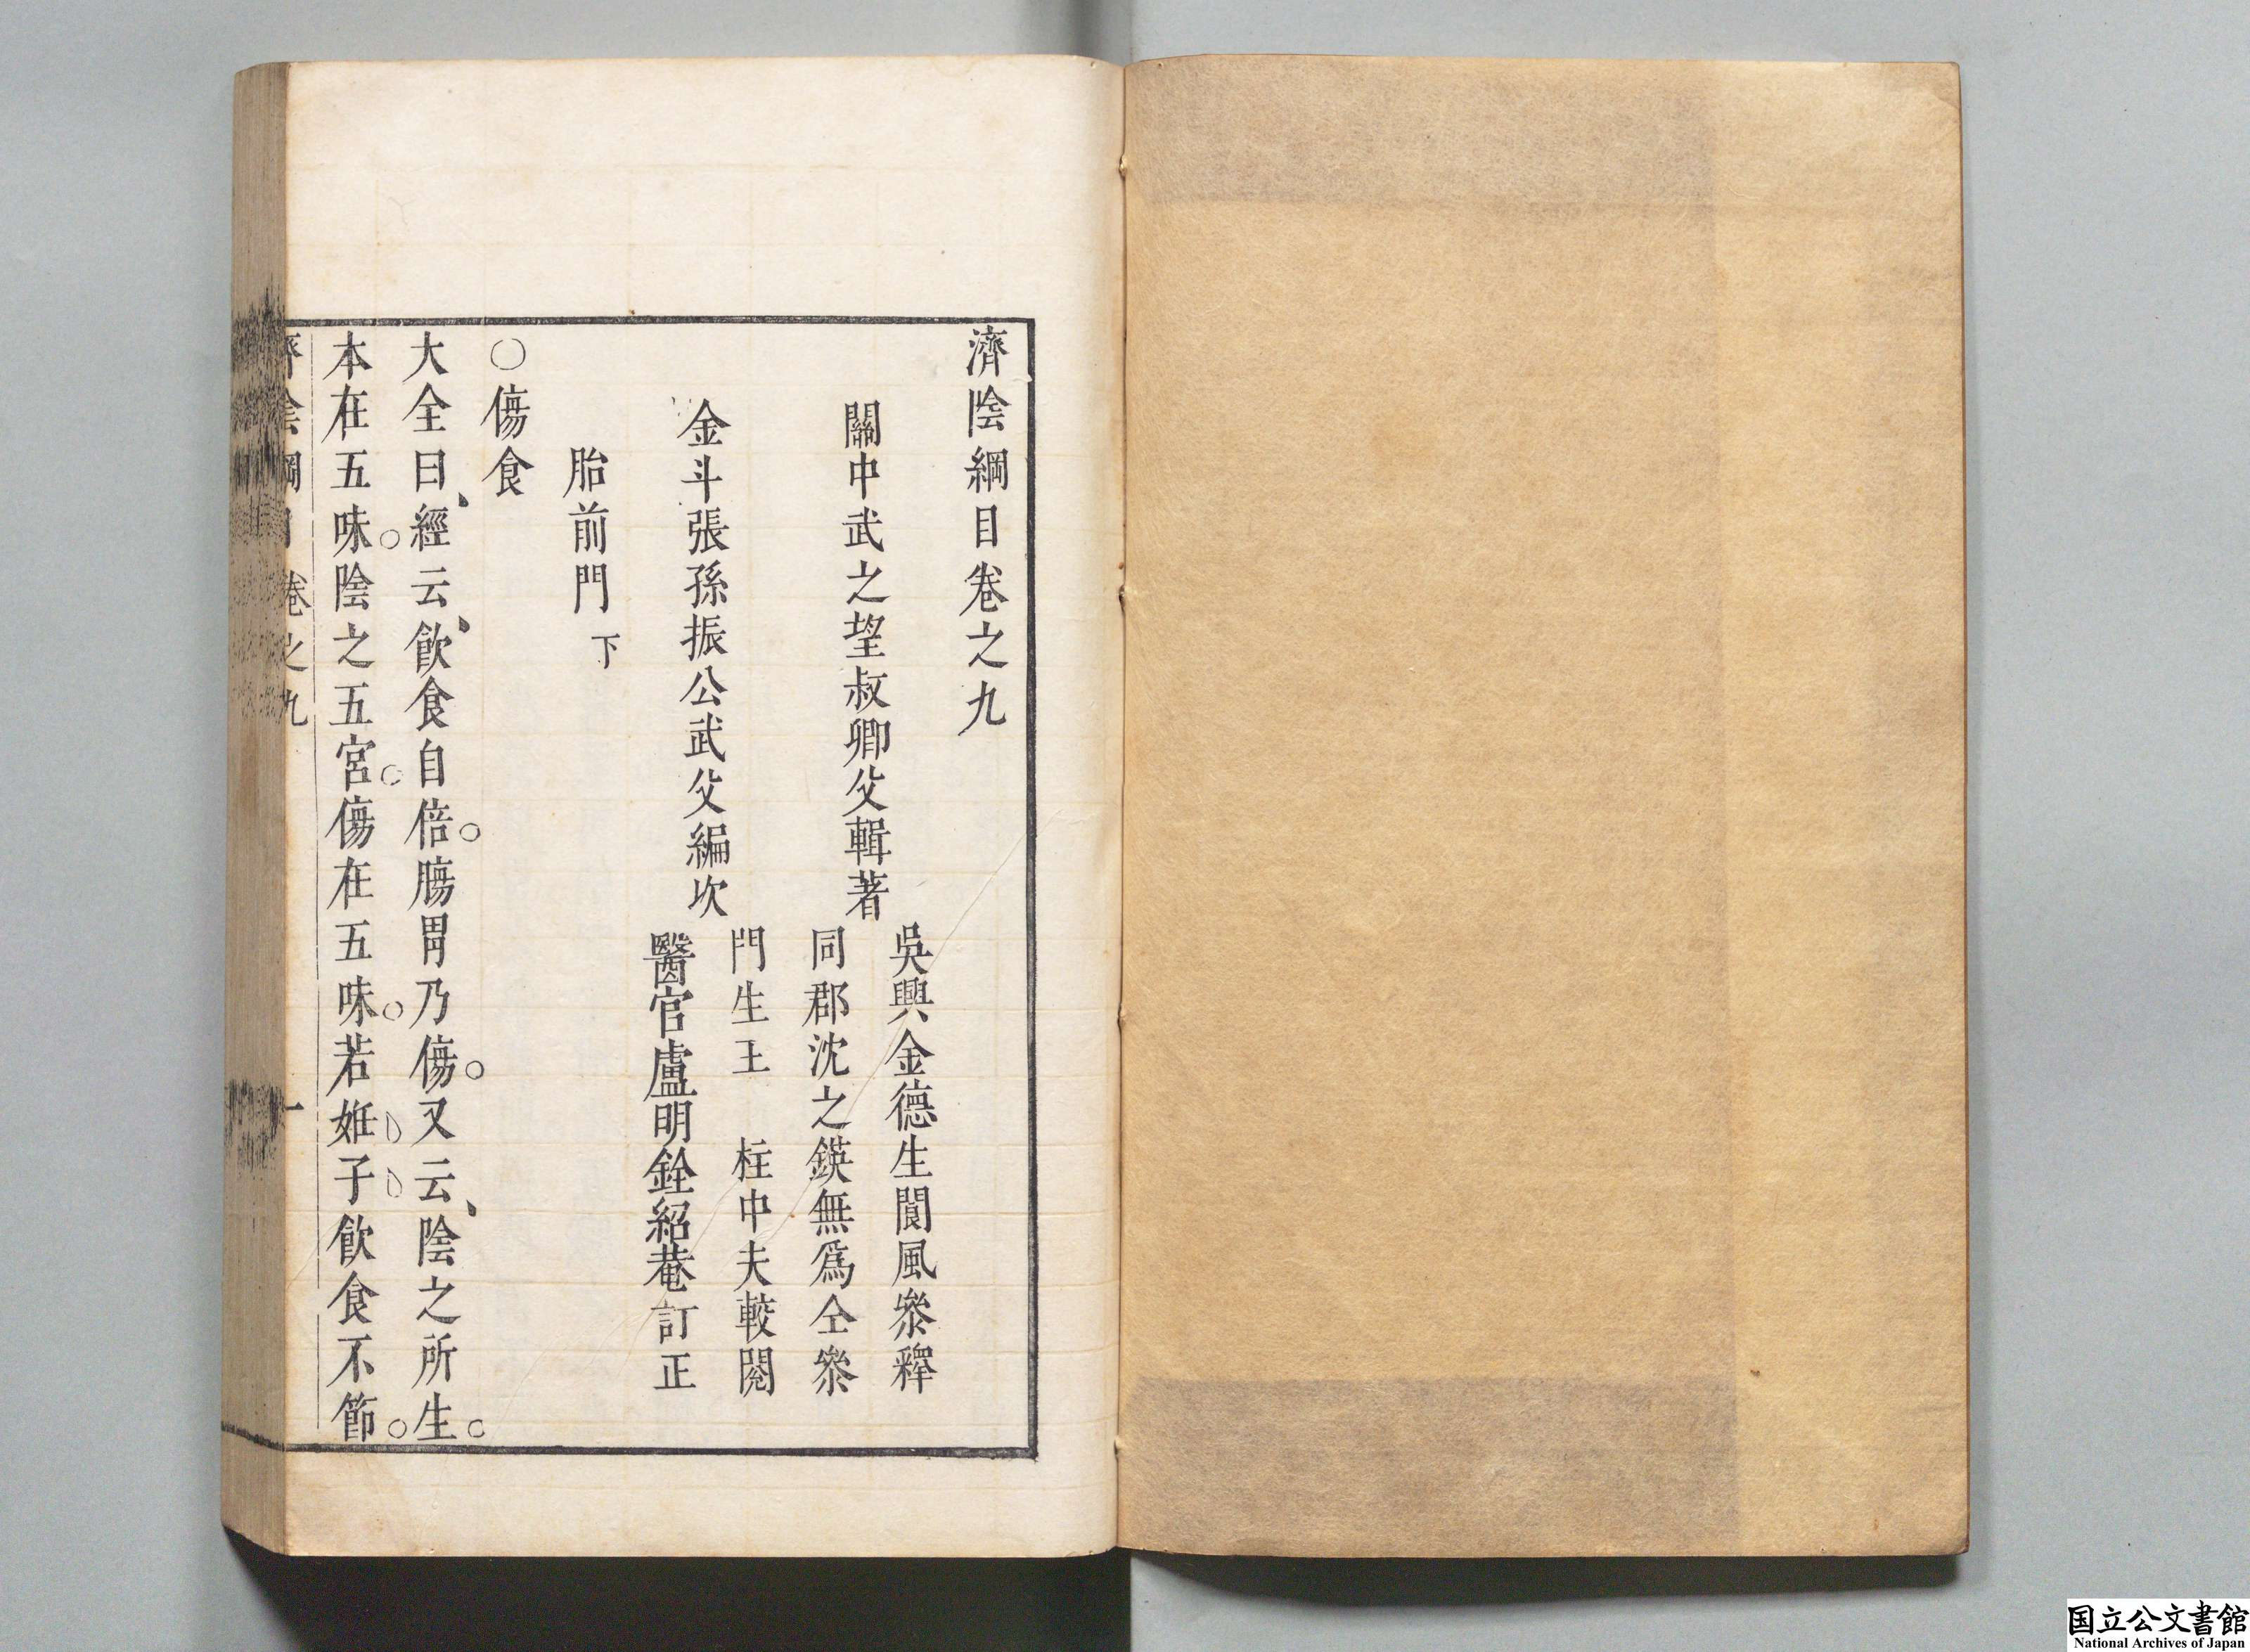 濟陰綱目卷之九
關中武之望叔卿父輯著
吳興金德生閬風叅釋
同郡沈之鍈無爲仝叅
金斗張孫振公武父編次
門生王　枉中夫較閱
醫官盧明銓紹菴訂正
胎前門下
○傷食
大全曰、經云、飲食自倍。腸胃乃傷。又云、陰之所生。
本在五味。陰之五宮。傷在五味。若姙子飲食不節。
濟陰綱目　卷之九　一
国立公文書館
National Archives of Japan